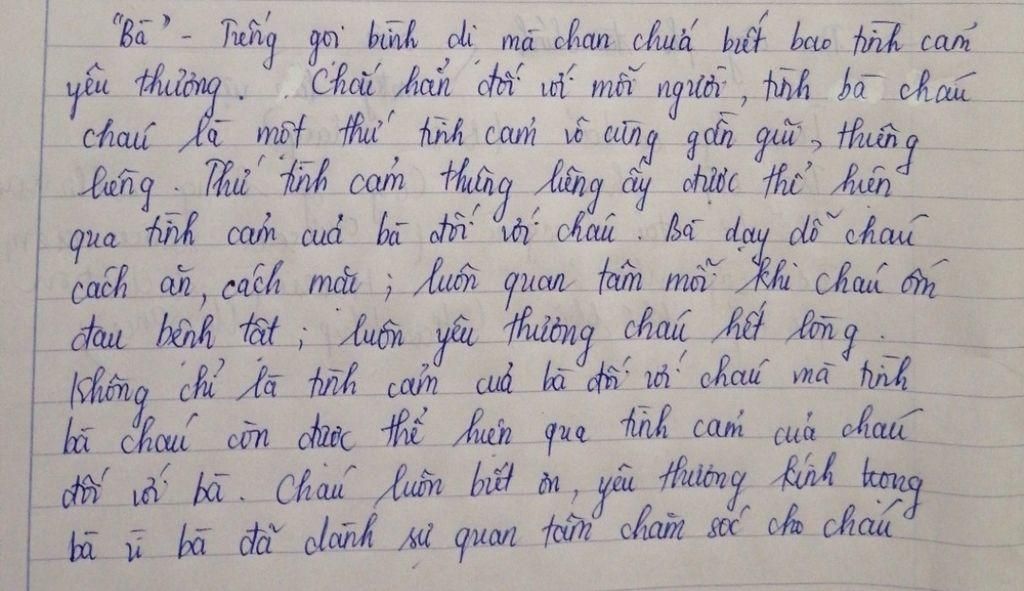 "Bà" - Tiếng gọi bình dị mà chan chứa biết bao tình cảm
yêu thương. Chắc hẳn đối với mỗi người, tình bà cháu
cháu là một thứ tình cảm vô cùng gần gũi, thiêng
liêng. Thứ tình cảm thiêng liêng ấy được thể hiện
qua tình cảm của bà đối với cháu. Bà dạy dỗ cháu
cách ăn, cách mặc; luôn quan tâm mỗi khi cháu ốm
đau bệnh tật; luôn yêu thương cháu hết lòng.
Không chỉ là tình cảm của bà đối với cháu mà tình
bà cháu còn được thể hiện qua tình cảm của cháu
đối với bà. Cháu luôn biết ơn, yêu thương kính trọng
bà vì bà đã dành sự quan tâm chăm sóc cho cháu